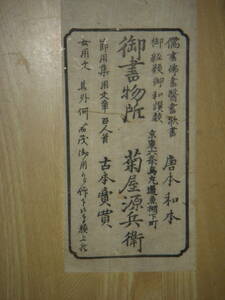 儒書佛書醫書歌書
唐本和本
御經類御和讃類
京東六条烏丸通魚棚下町
御書物所 菊屋源兵衛
節用集用文章百人首
古本賣買
女用文 其外何